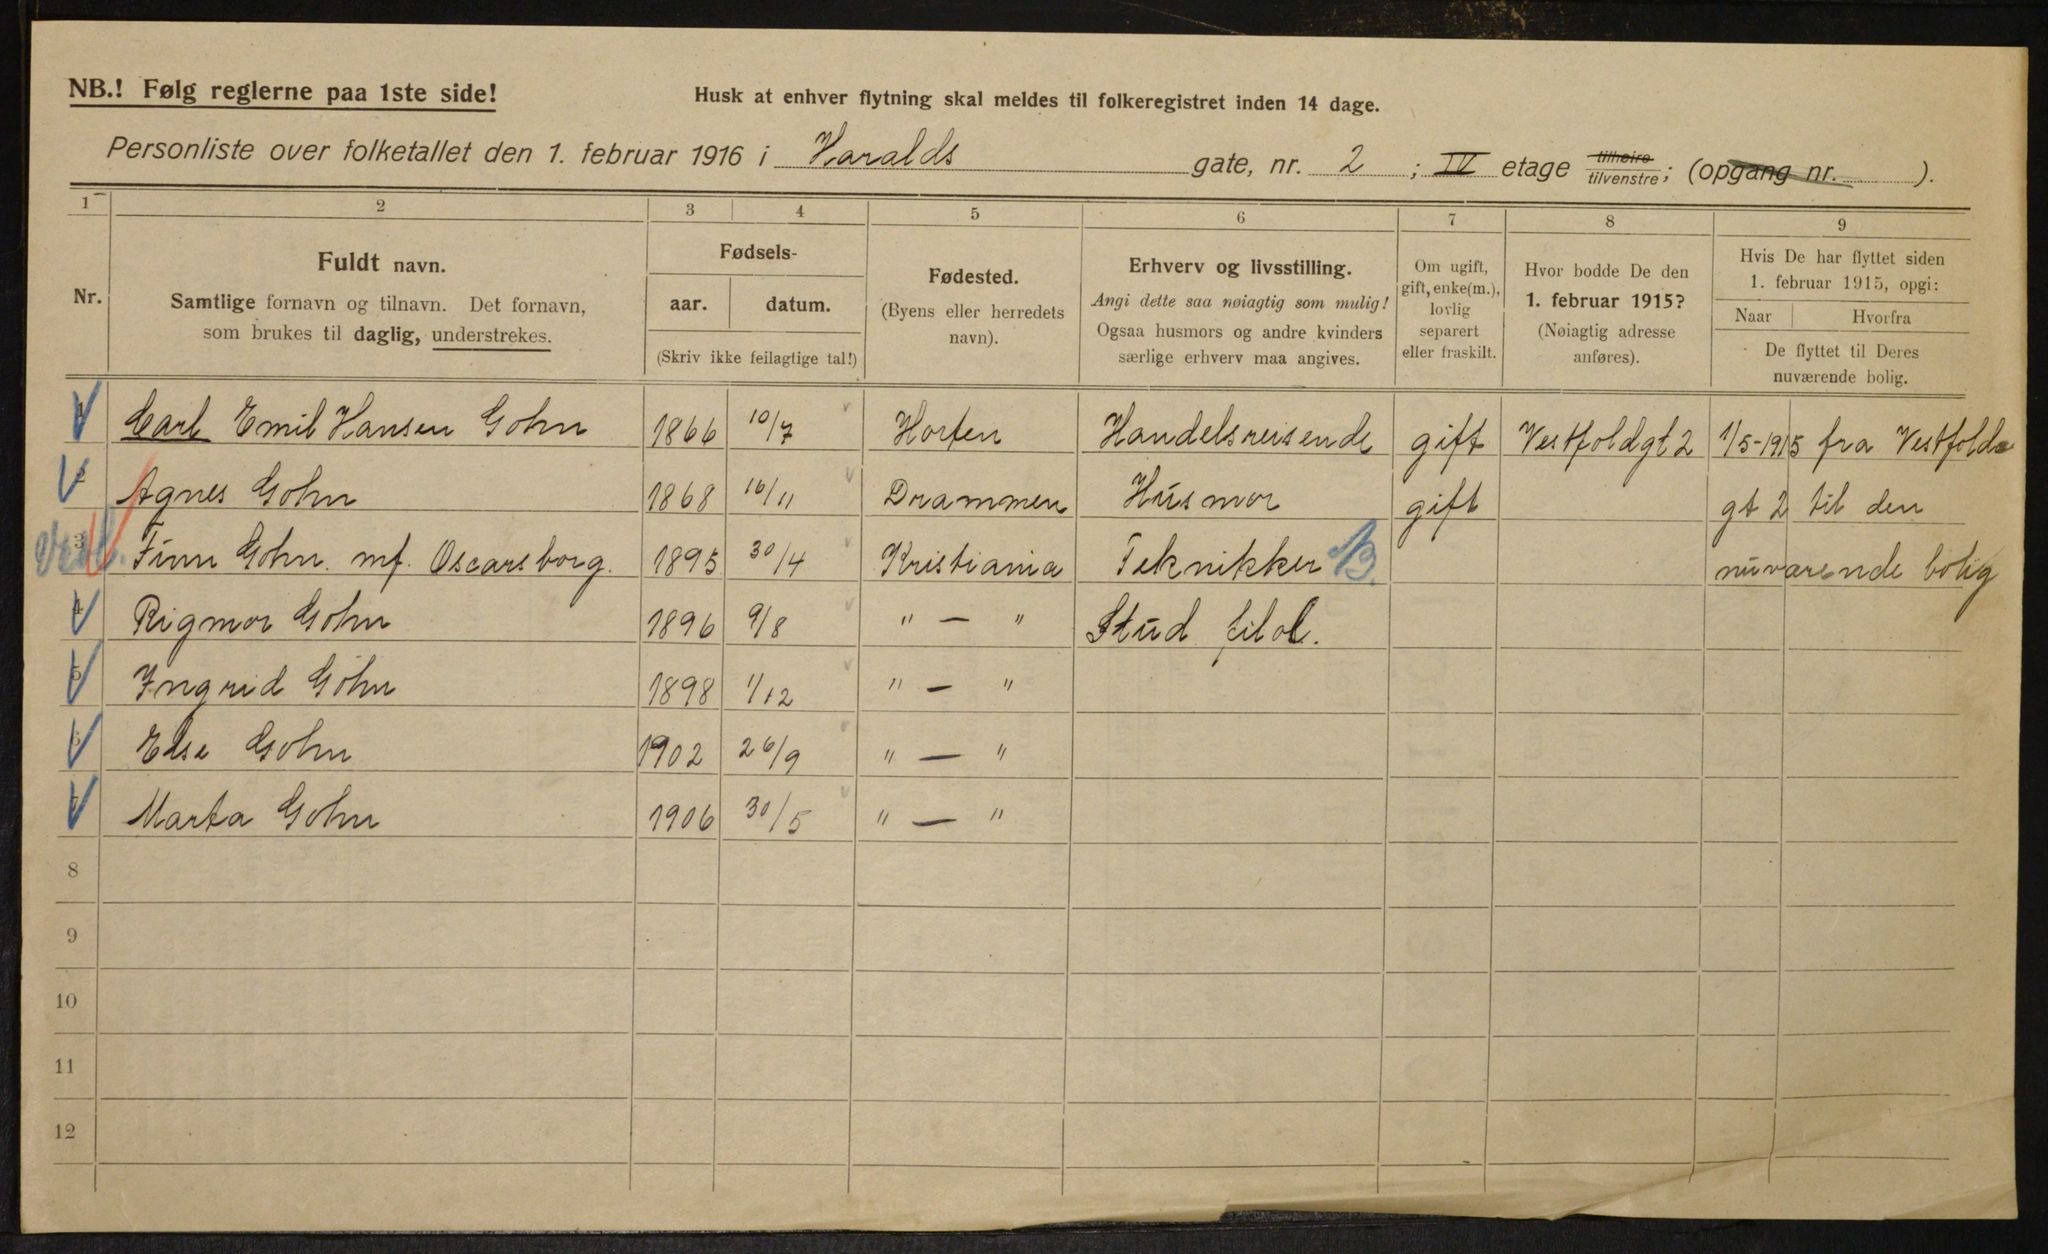 NB.! Følg reglerne paa 1ste side!
Husk at enhver flytning skal meldes til folkeregistret inden 14 dage.
Personliste over folketallet den 1. februar 1916 i Haralds gate, nr. 2 ; IV etage tilhøire tilvenstre; (opgang nr. ).
1 2 3 4 5 6 7 8 9
Nr.
Fuldt navn.
Samtlige fornavn og tilnavn. Det fornavn,
som brukes til daglig, understrekes.
Fødsels-
aar. datum.
(Skriv ikke feilagtige tal!)
Fødested.
(Byens eller herredets
navn).
Erhverv og livsstilling.
Angi dette saa nøiagtig som mulig!
Ogsaa husmors og andre kvinders
særlige erhverv maa angives.
Om ugift,
gift, enke(m.),
lovlig
separert
eller fraskilt.
Hvor bodde De den
1. februar 1915?
(Nøiagtig adresse
anføres).
Hvis De har flyttet siden
1. februar 1915, opgi:
Naar Hvorfra
De flyttet til Deres
nuværende bolig.
1 Carl Emil Hansen Gohn 1866 10/7 Horten Handelsreisende gift Vestfoldgt 2 1/5-1915 fra Vestfold
2 Agnes Gohn 1868 16/11 Drammen Husmor gift gt 2 til den
3 Finn Gohn. mf. Oscarsborg. 1895 30/4 Kristiania Teknikker B. nuværende bolig
4 Rigmor Gohn 1896 9/8 " — " Stud filol.
5 Ingrid Gohn 1898 1/12 " — "
6 Else Gohn 1902 26/9 " — "
7 Marta Gohn 1906 30/5 " — "
8
9
10
11
12